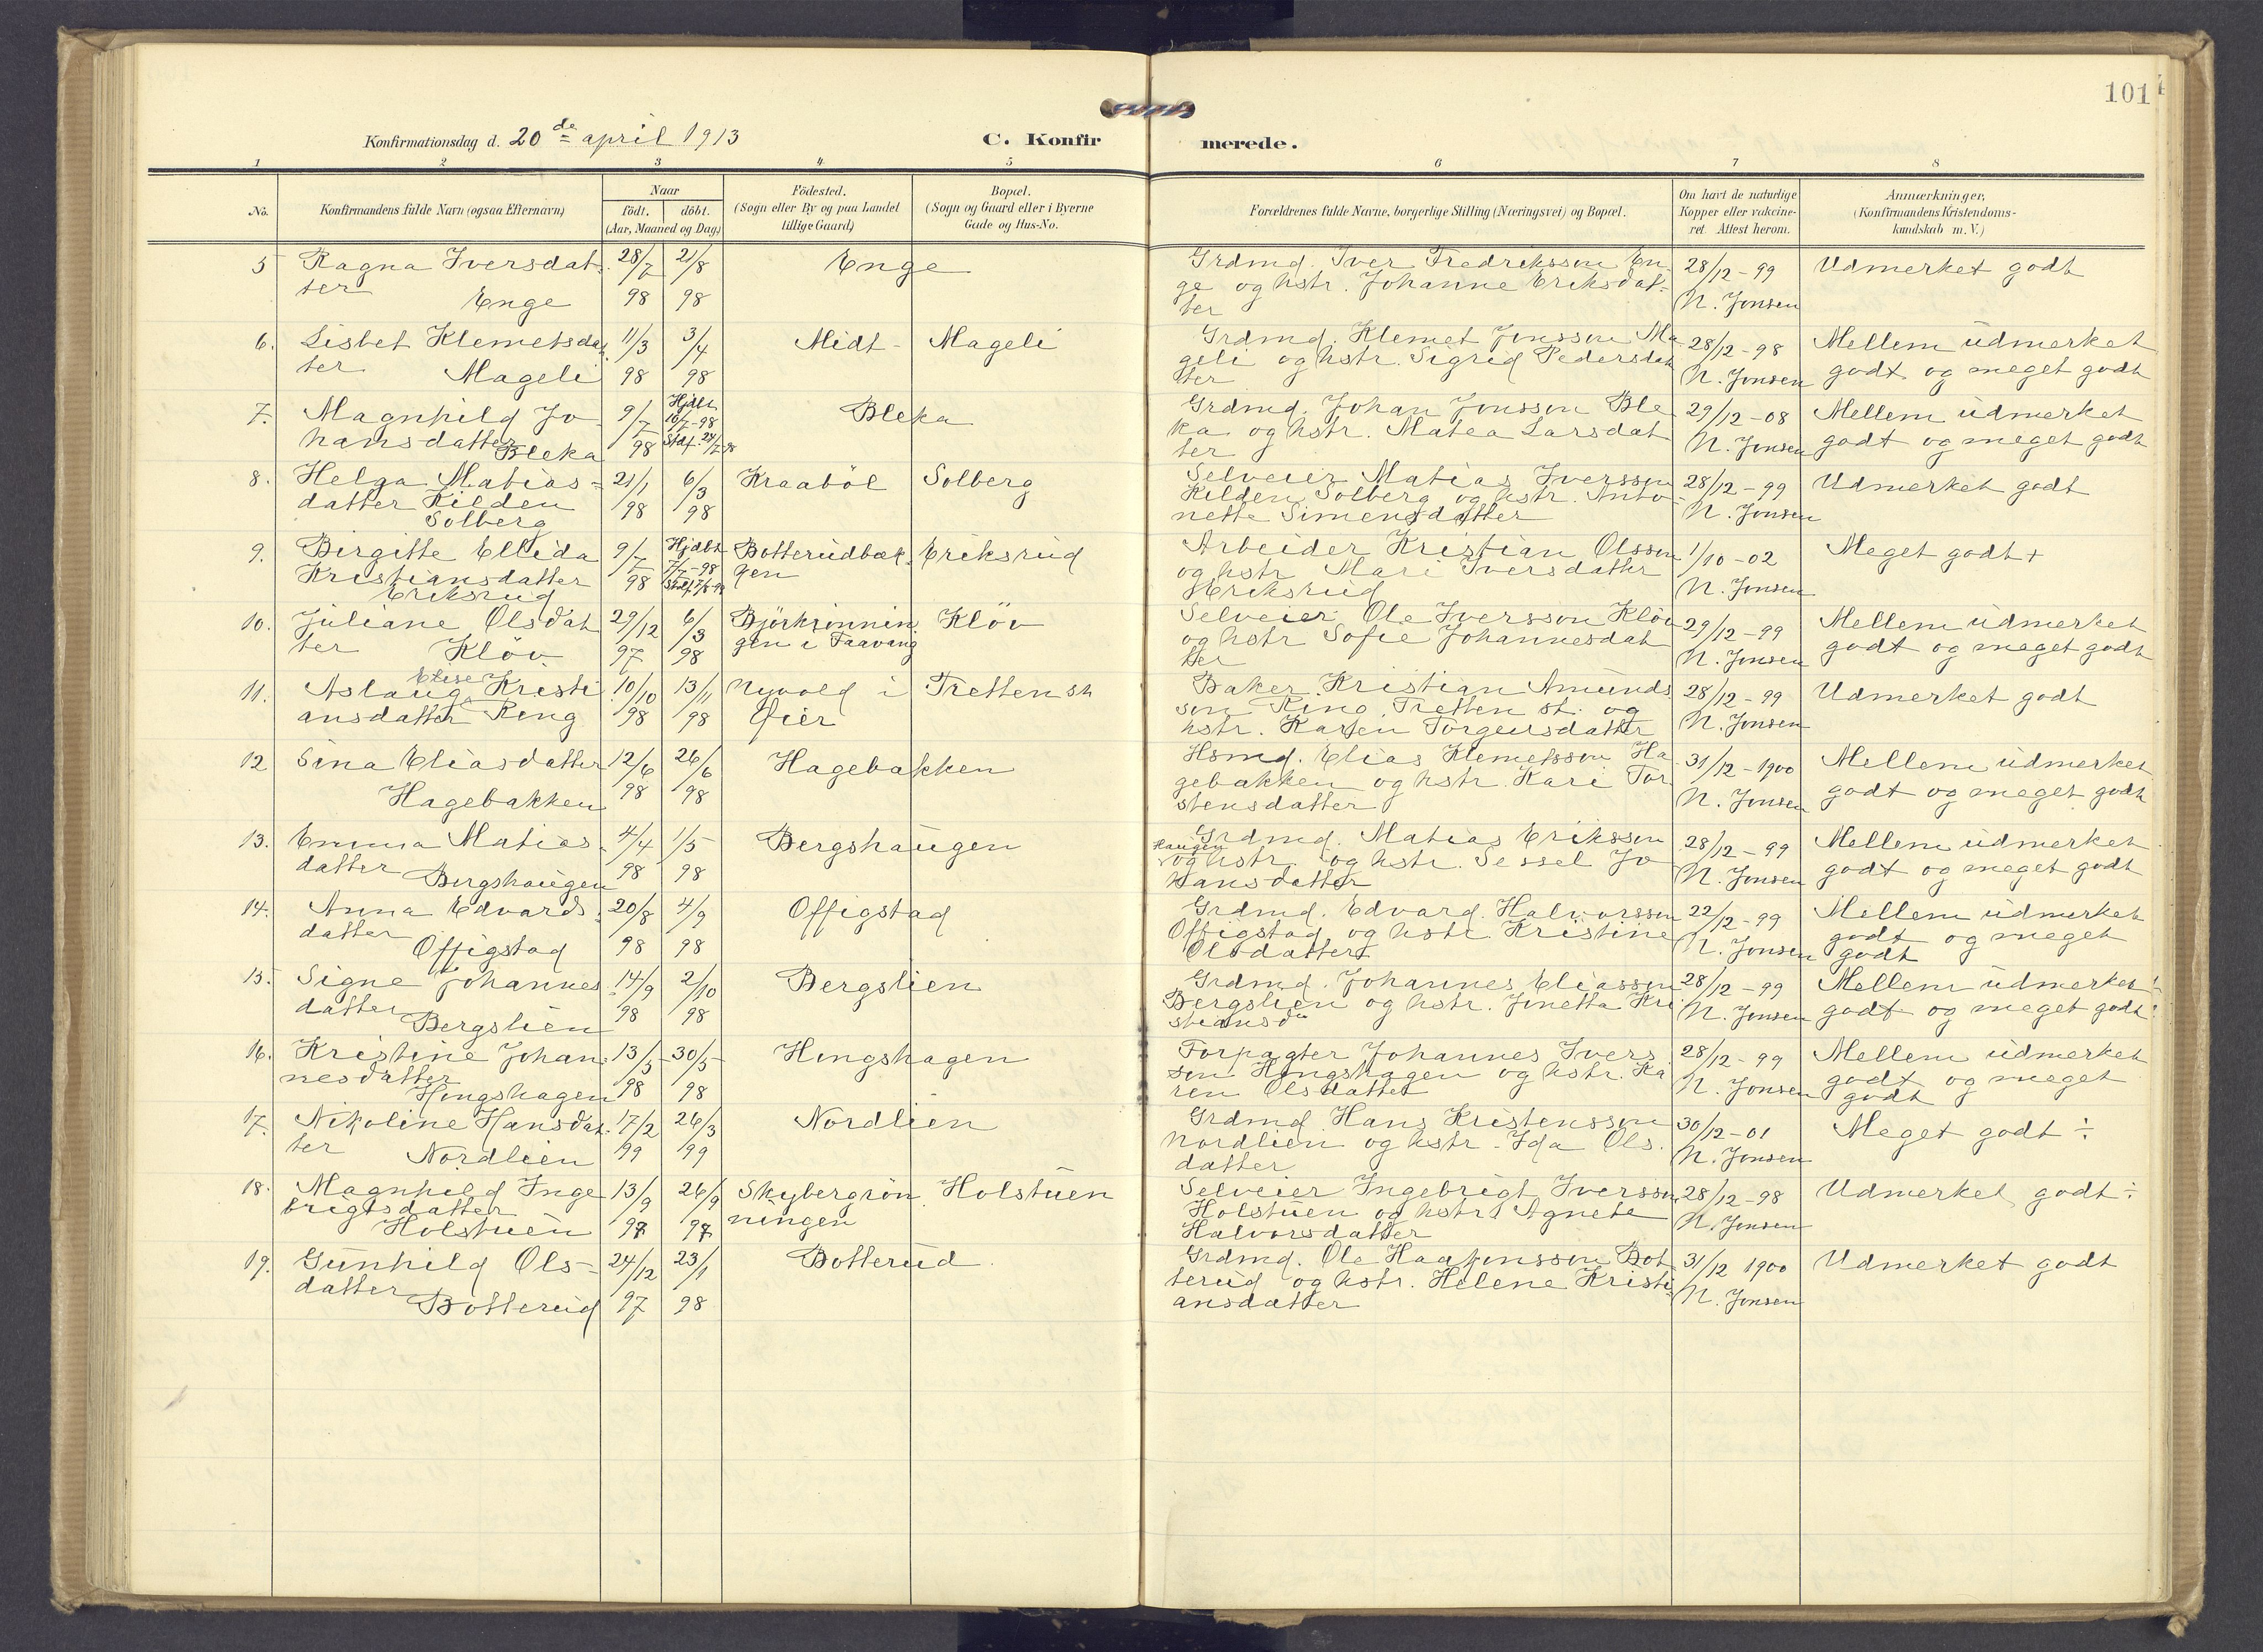 101
Konfirmationsdag d. 20de april 1913
C. Konfirmerede.
1 2 3 4 5 6 7 8
No.
Konfirmandens fulde Navn (ogsaa Efternavn)
Naar
født. døbt.
(Aar, Maaned og Dag)
Födested.
(Sogn eller By og paa Landet
tillige Gaard)
Bopæl.
(Sogn og Gaard eller i Byerne
Gade og Hus-No.
Forældrenes fulde Navne, borgerlige Stilling (Næringsvei) og Bopæl.
Om havt de naturlige
Kopper eller vakcine-
ret. Attest herom.
Anmærkninger,
(Konfirmandens Kristendoms-
kundskab m. V.)
5 Ragna Iversdat- 28/7 21/8 Enge Grdmd. Iver Fredriksson En 28/12-99 Udmerket godt
ter Enge 98 98 ge og hstr. Johanne Eriksdat- N. Jonsen
ter
6. Lisbet Klemetsdat 11/3 3/4 Midt- Mageli Grdmd. Klemet Jonsson Ma 28/12-98 Mellem udmerket
ter Mageli 98 98 geli og hstr. Sigrid Pedersdat N. Jonsen godt og meget godt
ter
7. Magnhild Jo 9/7 Hjdbt 10/7-98 Bleka Grdmd. Johan Jonsson Ble 29/12-08 Mellem udmerket
hansdatter Bleka 98 Stdf. 24/7-98 ka og hstr. Matea Larsdat N. Jonsen godt og meget godt
ter
8. Helga Matias- 21/1 6/3 Kraaböl Solberg Selveier Matias Iversson 28/12-99 Udmerket godt
datter Kilden 98 98 Kilden Solberg og hstr. Anto- N. Jonsen
Solberg nette Simensdatter
9. Birgitte Ellida 9/7 Hjdbt 7/7-98 Botterudbæk- Eriksrud Arbeider Kristian Olsson 1/10-02 Meget godt +
Kristiansdatter 98 Stdf. ken og hstr Mari Iversdatter N. Jonsen
Eriksrud Eriksrud
10. Juliane Olsdat 29/12 6/3 Björkrönnin Klöv Selveier Ole Iversson Klöv 29/12-99 Mellem udmerket
ter Klöv 97 98 gen i Faavang og hstr Sofie Johannesdat N. Jonsen godt og meget godt
ter
11. Aslaug Elise Kristi 10/10 13/11 Nyvold i Tretten st Baker Kristian Amunds 28/12-99 Udmerket godt
ansdatter Ring 98 98 Øier son Ring Tretten st. og N. Jonsen
hstr. Karen Torgeirsdatter
12 Sina Eliasdatter 12/6 26/6 Hagebakken Hsmd. Elias Klemetsson Ha 31/12-1900 Mellem udmerket
Hagebakken 98 98 gebakken og hstr. Kari Tor N. Jonsen godt og meget godt
stensdatter
13. Emma Matias 4/4 1/5 Bergshaugen Grdmd. Matias Eriksson 28/12-99 Mellem udmerket
datter Bergshaugen 98 98 haugen og hstr. og hstr. Sessel Jo N. Jonsen godt og meget godt
hansdatter
14. Anna Edvards- 20/8 4/9 Offigstad Grdmd. Edvard Halvorsson 22/12-99 Mellem udmerket
datter Offigstad 98 98 Offigstad og hstr. Kristine N. Jonsen godt og meget
Olsdatter godt
15. Signe Johannes 14/9 2/10 Bergslien Grdmd. Johannes Eliasson 28/12-99 Mellem udmerket
datter Bergslien 98 98 Bergslien og hstr. Jonetta Kri N. Jonsen godt og meget godt
stiansdtr
16. Kristine Johan- 13/5 30/5 Hongshagen Forpagter Johannes Ivers 28/12-99 Mellem udmerket
nesdatter Hongshagen 98 98 son Hongshagen og hstr. Ka N. Jonsen godt og meget
ren Olsdatter godt
17. Nikoline Hansdat- 17/2 26/3 Nordlien Grdmd. Hans Kristensson 30/12-01 Meget godt ÷
ter Nordlien 99 99 Nordlien og hstr. Ida Ols. N. Jonsen
datter
18. Magnhild Inge 13/9 26/9 Skybergrön Holstuen Selveier Ingebrigt Iversson 28/12-98 Udmerket godt ÷
brigtsdatter 97 97 ningen Holstuen og hstr. Agnete N. Jonsen
Holstuen Halvorsdatter
19. Gunhild Ols- 24/12 23/1 Botterud Grdmd. Ole Haakonsson Bot 31/12 1900 Udmerket godt
datter Botterud 97 98 terud og hstr. Helene Kristi N. Jonsen
ansdatter